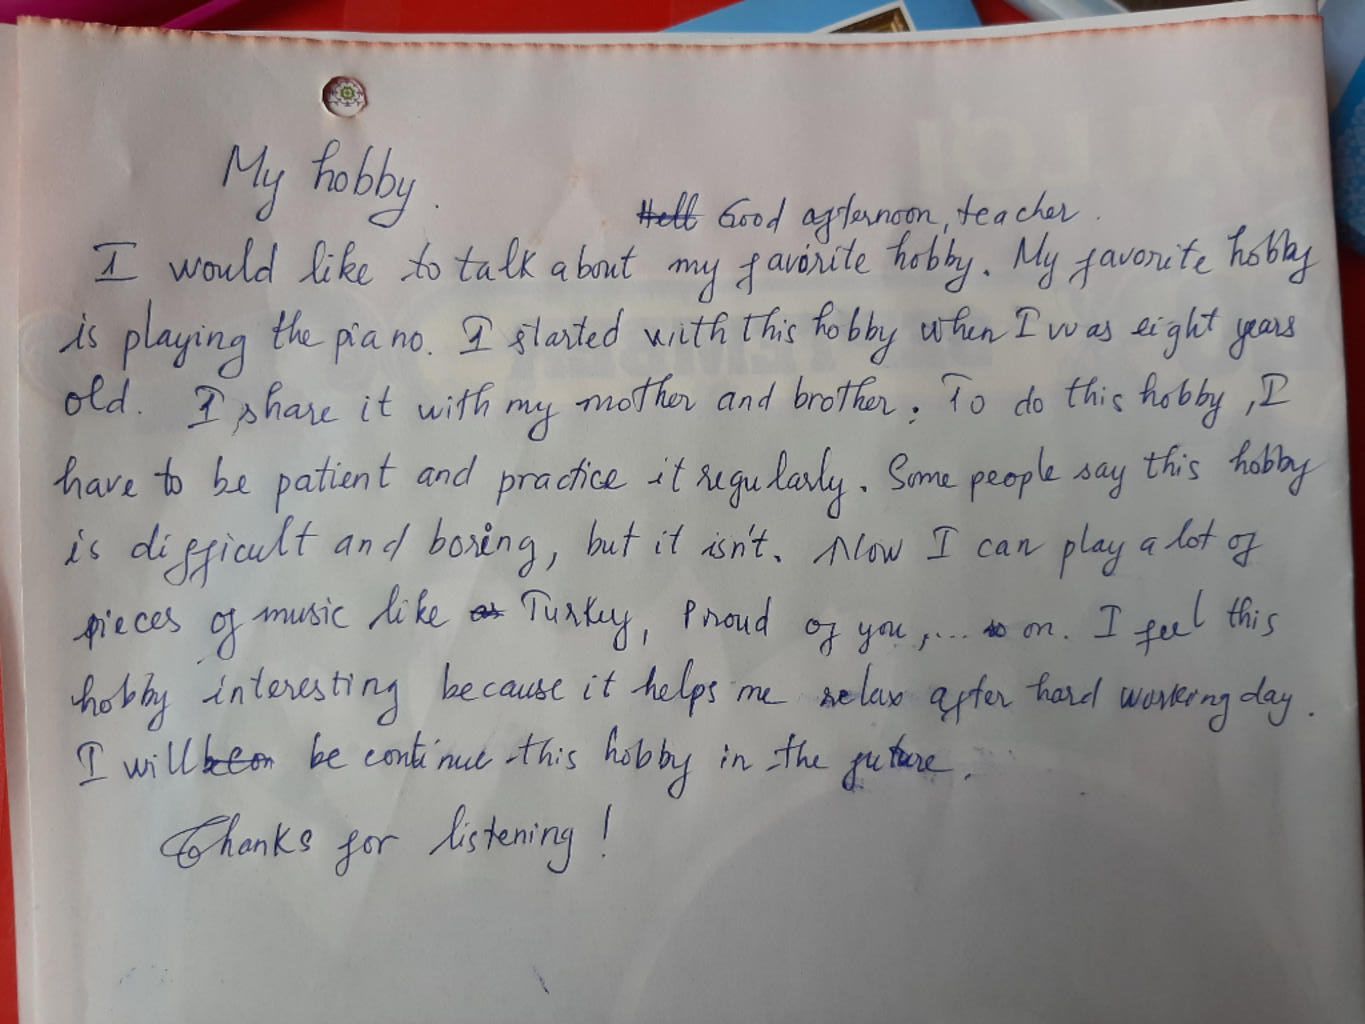 My hobby.
Good afternoon, teacher.
I would like to talk about my favorite hobby. My favorite hobby
is playing the piano. I started with this hobby when I was eight years
old. I share it with my mother and brother. To do this hobby, I
have to be patient and practice it regularly. Some people say this hobby
is difficult and boring, but it isn't. Now I can play a lot of
pieces of music like Turkey, Proud of you,... so on. I feel this
hobby interesting because it helps me relax after hard working day.
I will be continue this hobby in the future.
Thanks for listening!